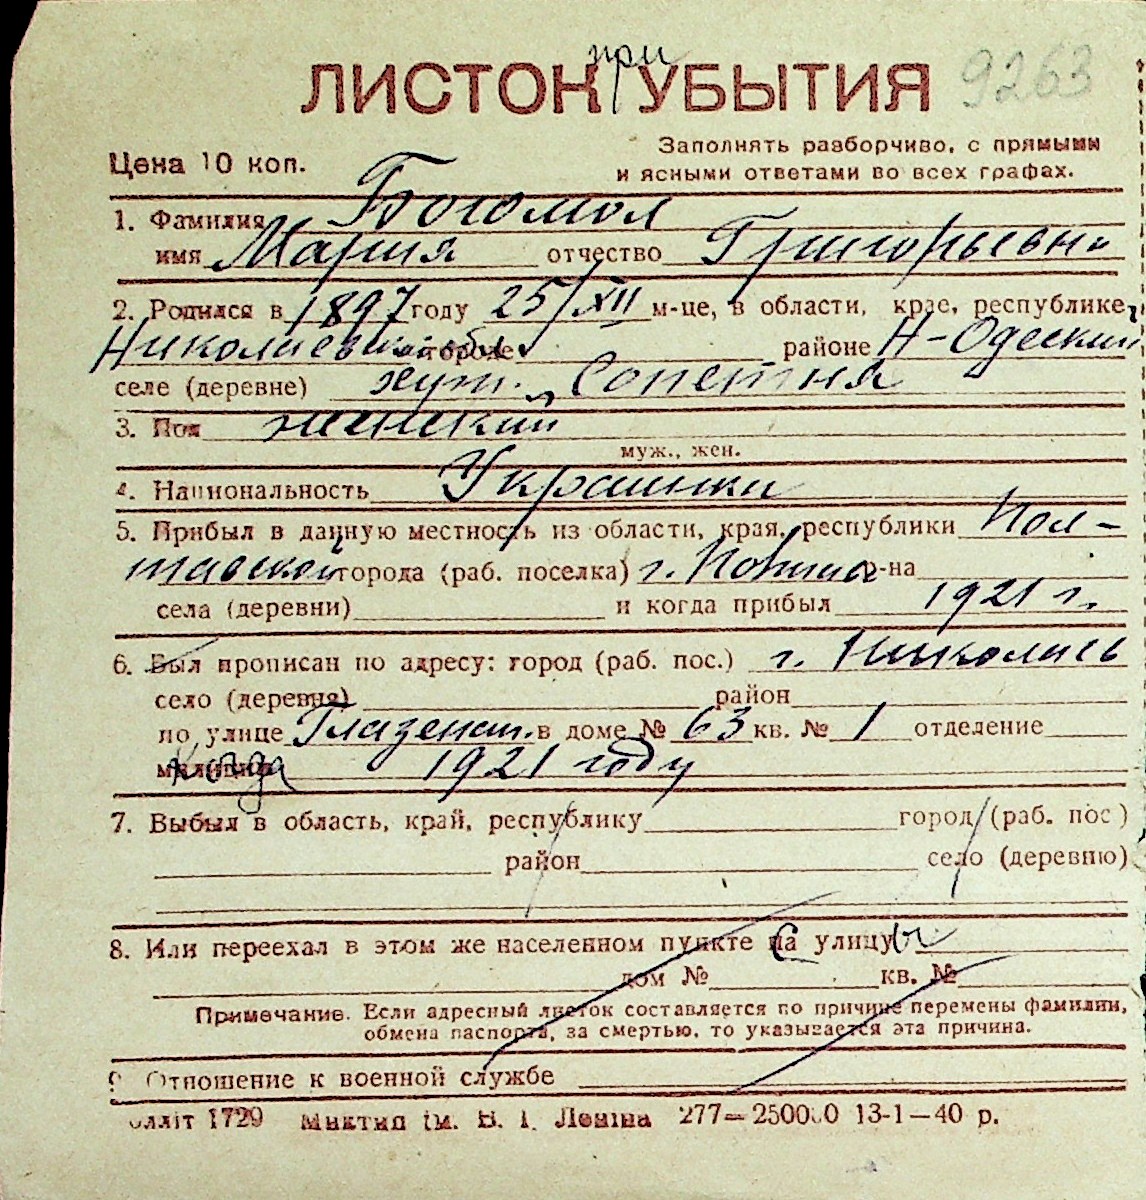 при
ЛИСТОК УБЫТИЯ 9263
Цена 10 коп.
Заполнять разборчиво, с прямыми
и ясными ответами во всех графах.
1. Фамилия Богомол
имя Мария отчество Григорьевна
2. Родился в 1897 году 25/XII м-це, в области, крае, республике,
Николаевской обл городе районе Н-Одеский
селе (деревне) хут. „Сопетня
3. Пол женский
муж., жен.
4. Национальность Украинка
5. Прибыл в данную местность из области, края, республики Пол-
тавской города (раб. поселка) г. р-на
села (деревни) и когда прибыл 1921 г.
6. Был прописан по адресу: город (раб. пос.) г. Николаев
село (деревня) район
по улице Глазенап. в доме № 63 кв. № 1 отделение
милиции когда 1921 году
7. Выбыл в область, край, республику город (раб. пос)
район село (деревню)
8. Или переехал в этом же населенном пункте на улицу
дом № кв. №
Примечание. Если адресный листок составляется по причине перемены фамилии,
обмена паспорта, за смертью, то указывается эта причина.
9 Отношение к военной службе
1729 ім. В. І. Леніна 277—250000 13-1—40 р.